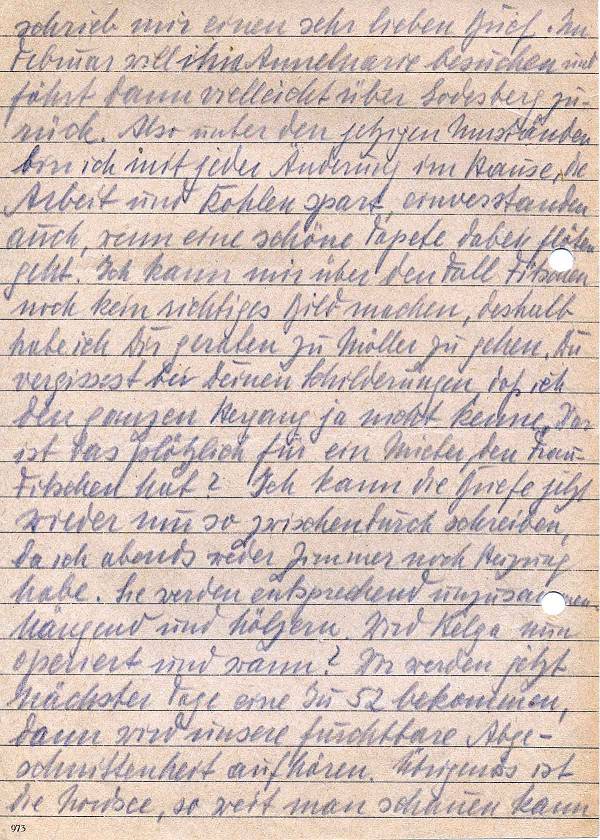 schrieb mir einen sehr lieben Brief. Im
Februar will ihn Annemarie besuchen und
fährt dann vielleicht über Godesberg zu-
rück. Also unter den jetzigen Umständen
bin ich mit jeder Änderung im Hause, die
Arbeit und Kohlen spart, einverstanden
auch, wenn eine schöne Tapete dabei flöten
geht. Ich kann mir über den Fall Ditschen
noch kein richtiges Bild machen, deshalb
habe ich Dir geraten zu Möller zu gehen. Du
vergissest bei Deinen Schilderungen, daß ich
den ganzen Hergang ja nicht kenne. Was
ist das plötzlich für ein Mieter, den Frau
Ditschen hat? Ich kann die Briefe jetzt
wieder nur so zwischendurch schreiben,
da ich abends weder Zimmer noch Heizung
habe. Sie werden entsprechend unzusammen-
hängend und hölzern. Wird Helga nun
operiert und wann? Wir werden jetzt
nächster Tage eine Ju 52 bekommen,
dann wird unsere furchtbare Abge-
schnittenheit aufhören. Übrigens ist
die Nordsee, so weit man schauen kann
973